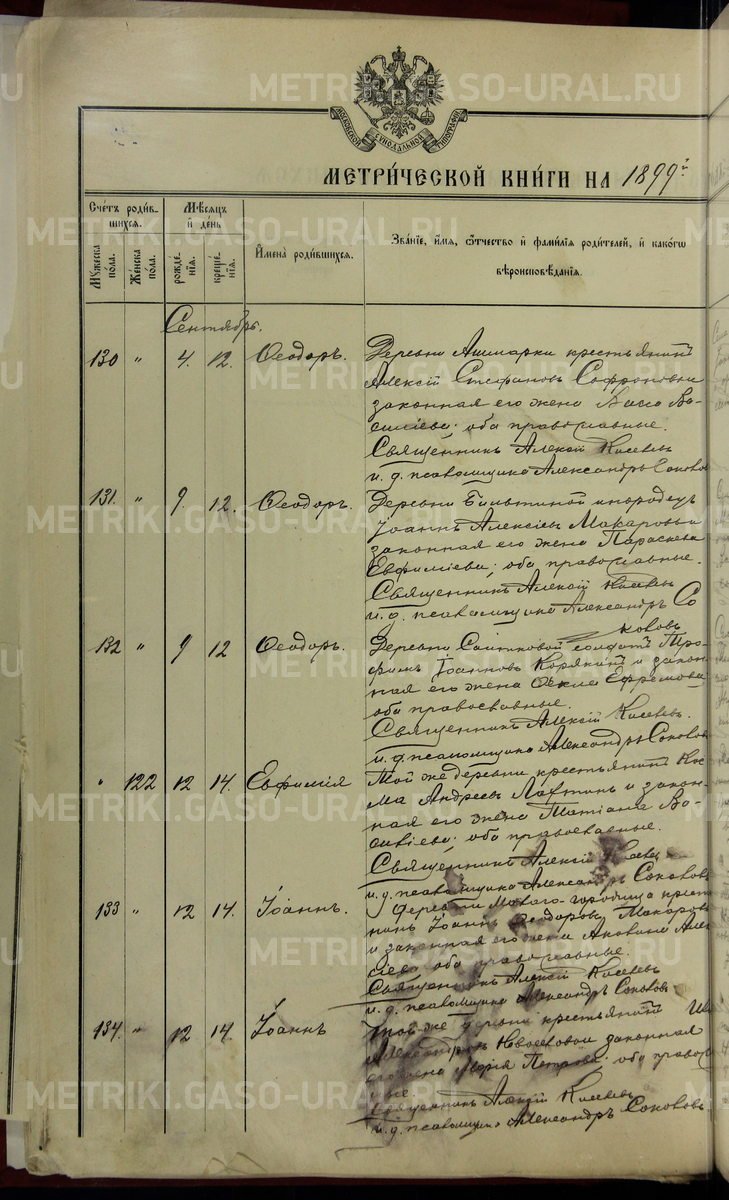 МОСКОВСКОЙ СѴНОДАЛЬНОЙ ТИПОГРАФІИ
МЕТРИ́ЧЕСКОЙ КНИ́ГИ НА 1899й
Сче́тъ роди́в-
шихся.
Мѣ́сяцъ
и҆ де́нь
Мꙋ́жеска по́ла.
Же́нска по́ла.
рожде́-
нїѧ.
креще́-
нїѧ.
И҆мена̀ роди́вшихсѧ.
Зва́нїе, и҆́мѧ, ѻ҆́тчество и҆ фами́лїѧ роди́телей, и҆ како́гѡ
вѣроисповѣ́данїѧ.
Сентябрь.
130 " 4. 12. Ѳеодоръ. Деревни Ашмарки крестьянинъ
Алексій Стефановъ Софроновъ и
законная его жена Васса Ва-
силіева; оба православные.
Священникъ Алексій Киселевъ
и. д. псаломщика Александръ Соколовъ
131. " 9. 12. Ѳеодоръ. Деревни инородецъ
Іоаннъ Алексіевъ Макаровъ и
законная его жена Параскева
Евфиміева; оба православные.
Священникъ Алексій Киселевъ
и. д. псаломщика Александръ Со
коловъ
132 " 9 12 Ѳеодоръ. Деревни Саитковой солдатъ Тро-
фимъ Іоанновъ Корякинъ и закон-
ная его жена Ѳекла Ефремова
оба православные.
Священникъ Алексій Киселевъ.
и. д. псаломщика Александръ Соколовъ
" 122 12 14. Евфимія Той же деревни крестьянинъ Кос
ма Андреевъ Лаптинъ и закон-
ная его жена Татіана Ва-
силіева; оба православные.
Священникъ Алексій
и. д. псаломщика Александръ Соколовъ
133 " 12 14. Іоаннъ. Деревни городища крест
нинъ Іоаннъ Ѳеодоровъ Макаровъ
и законная его жена Алек
сіева, оба православные.
Священникъ Алексій Киселевъ
и. д. псаломщика Александръ Соколовъ
134. " 12 14. Іоаннъ Той же деревни крестьянинъ
Александровъ законная
его жена Марія Петрова; оба правос
ные.
Священникъ Алексій Киселевъ
и. д. псаломщика Александръ Соколовъ
METRIKI.GASO-URAL.RU